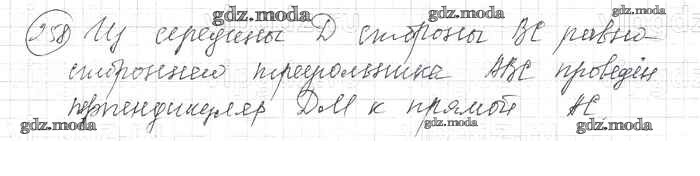 gdz.moda gdz.moda
258 Из середины D стороны BC равно
стороннего треугольника ABC проведён
перпендикуляр DM к прямой AC
gdz.moda gdz.moda gdz.moda